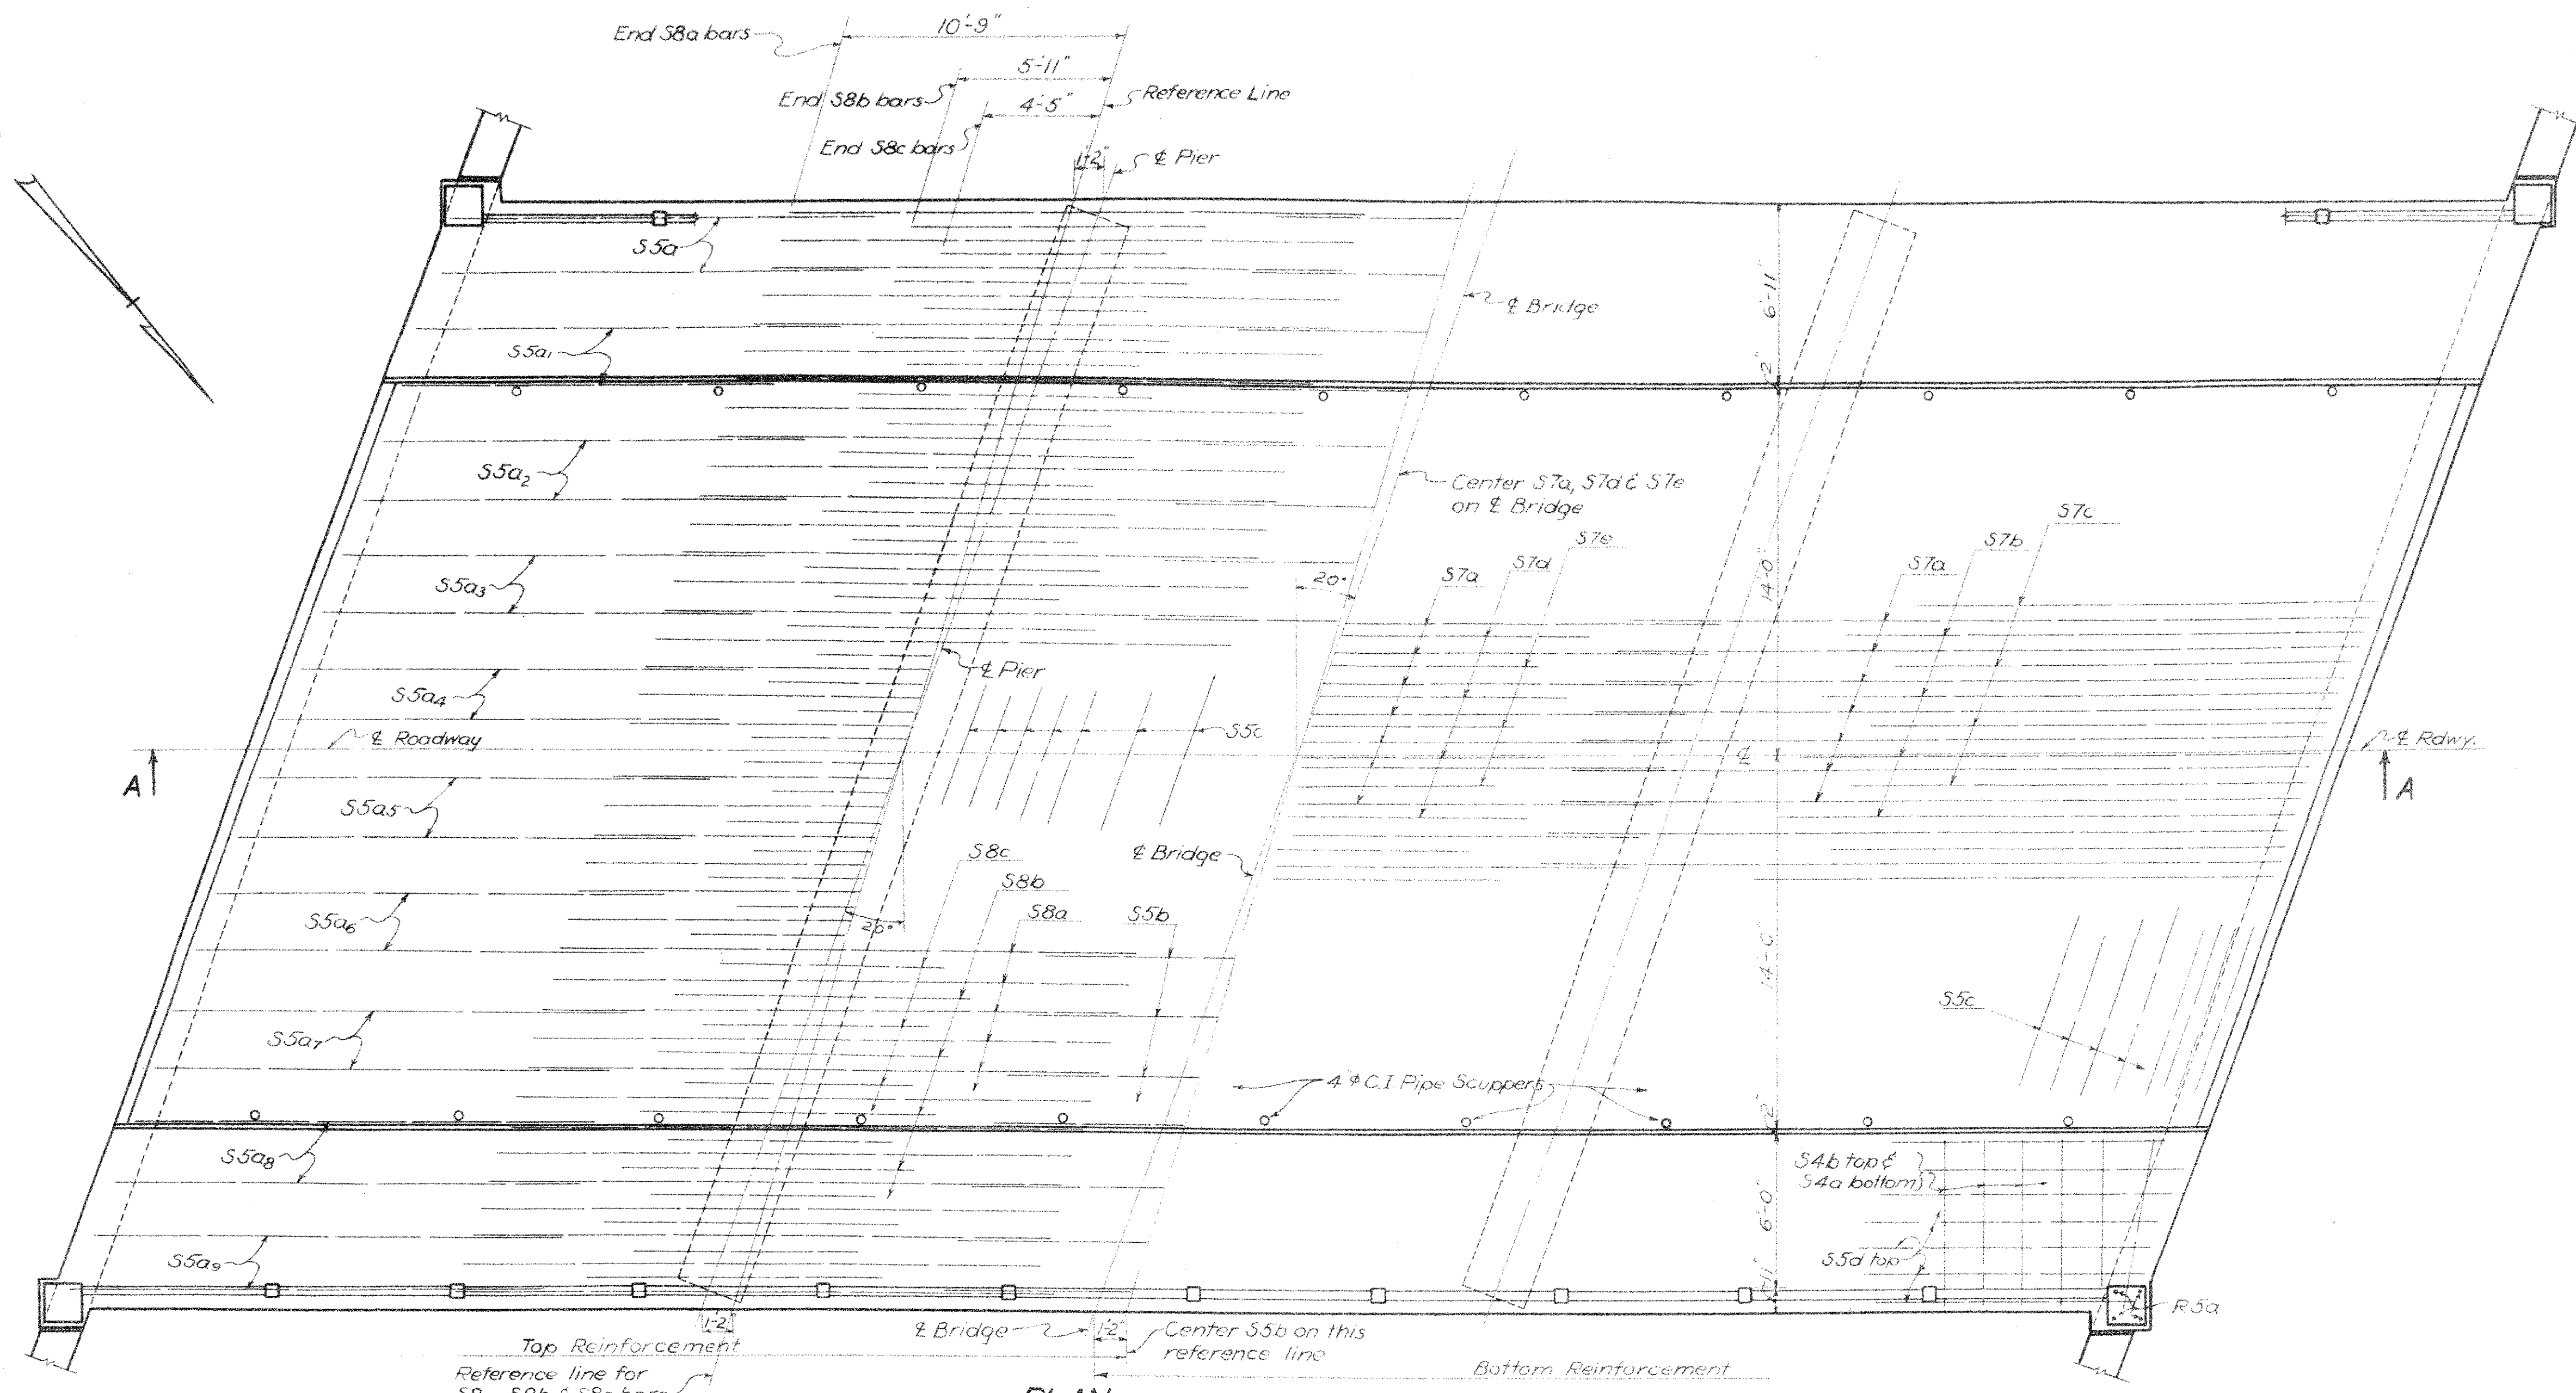 10'-9"
End S8a bars
5'-11"
End S8b bars
4'-5"
Reference Line
End S8c bars
1'-2"
℄ Pier
S5a
℄ Bridge
6'-11"
S5a₁
2"
S5a₂
Center S7a, S7d & S7e
on ℄ Bridge
S7c
S7b
S7e
S7d
S7a
S7a
14'-0"
20°
S5a₃
℄ Pier
S5a₄
S5c
℄ Roadway
℄
℄ Rdwy.
A
A
S5a₅
S8c
℄ Bridge
S8b
S8a
S5b
S5a₆
20°
14'-0"
S5c
S5a₇
4"ϕ C.I. Pipe Scuppers
2"
S5a₈
S4b top &
S4a bottom
6'-0"
S5d top
S5a₉
11"
R5a
1'-2"
℄ Bridge
1'-2"
Center S5b on this
reference line
Top Reinforcement
Bottom Reinforcement
Reference line for
S8a, S8b & S8c bars
PLAN